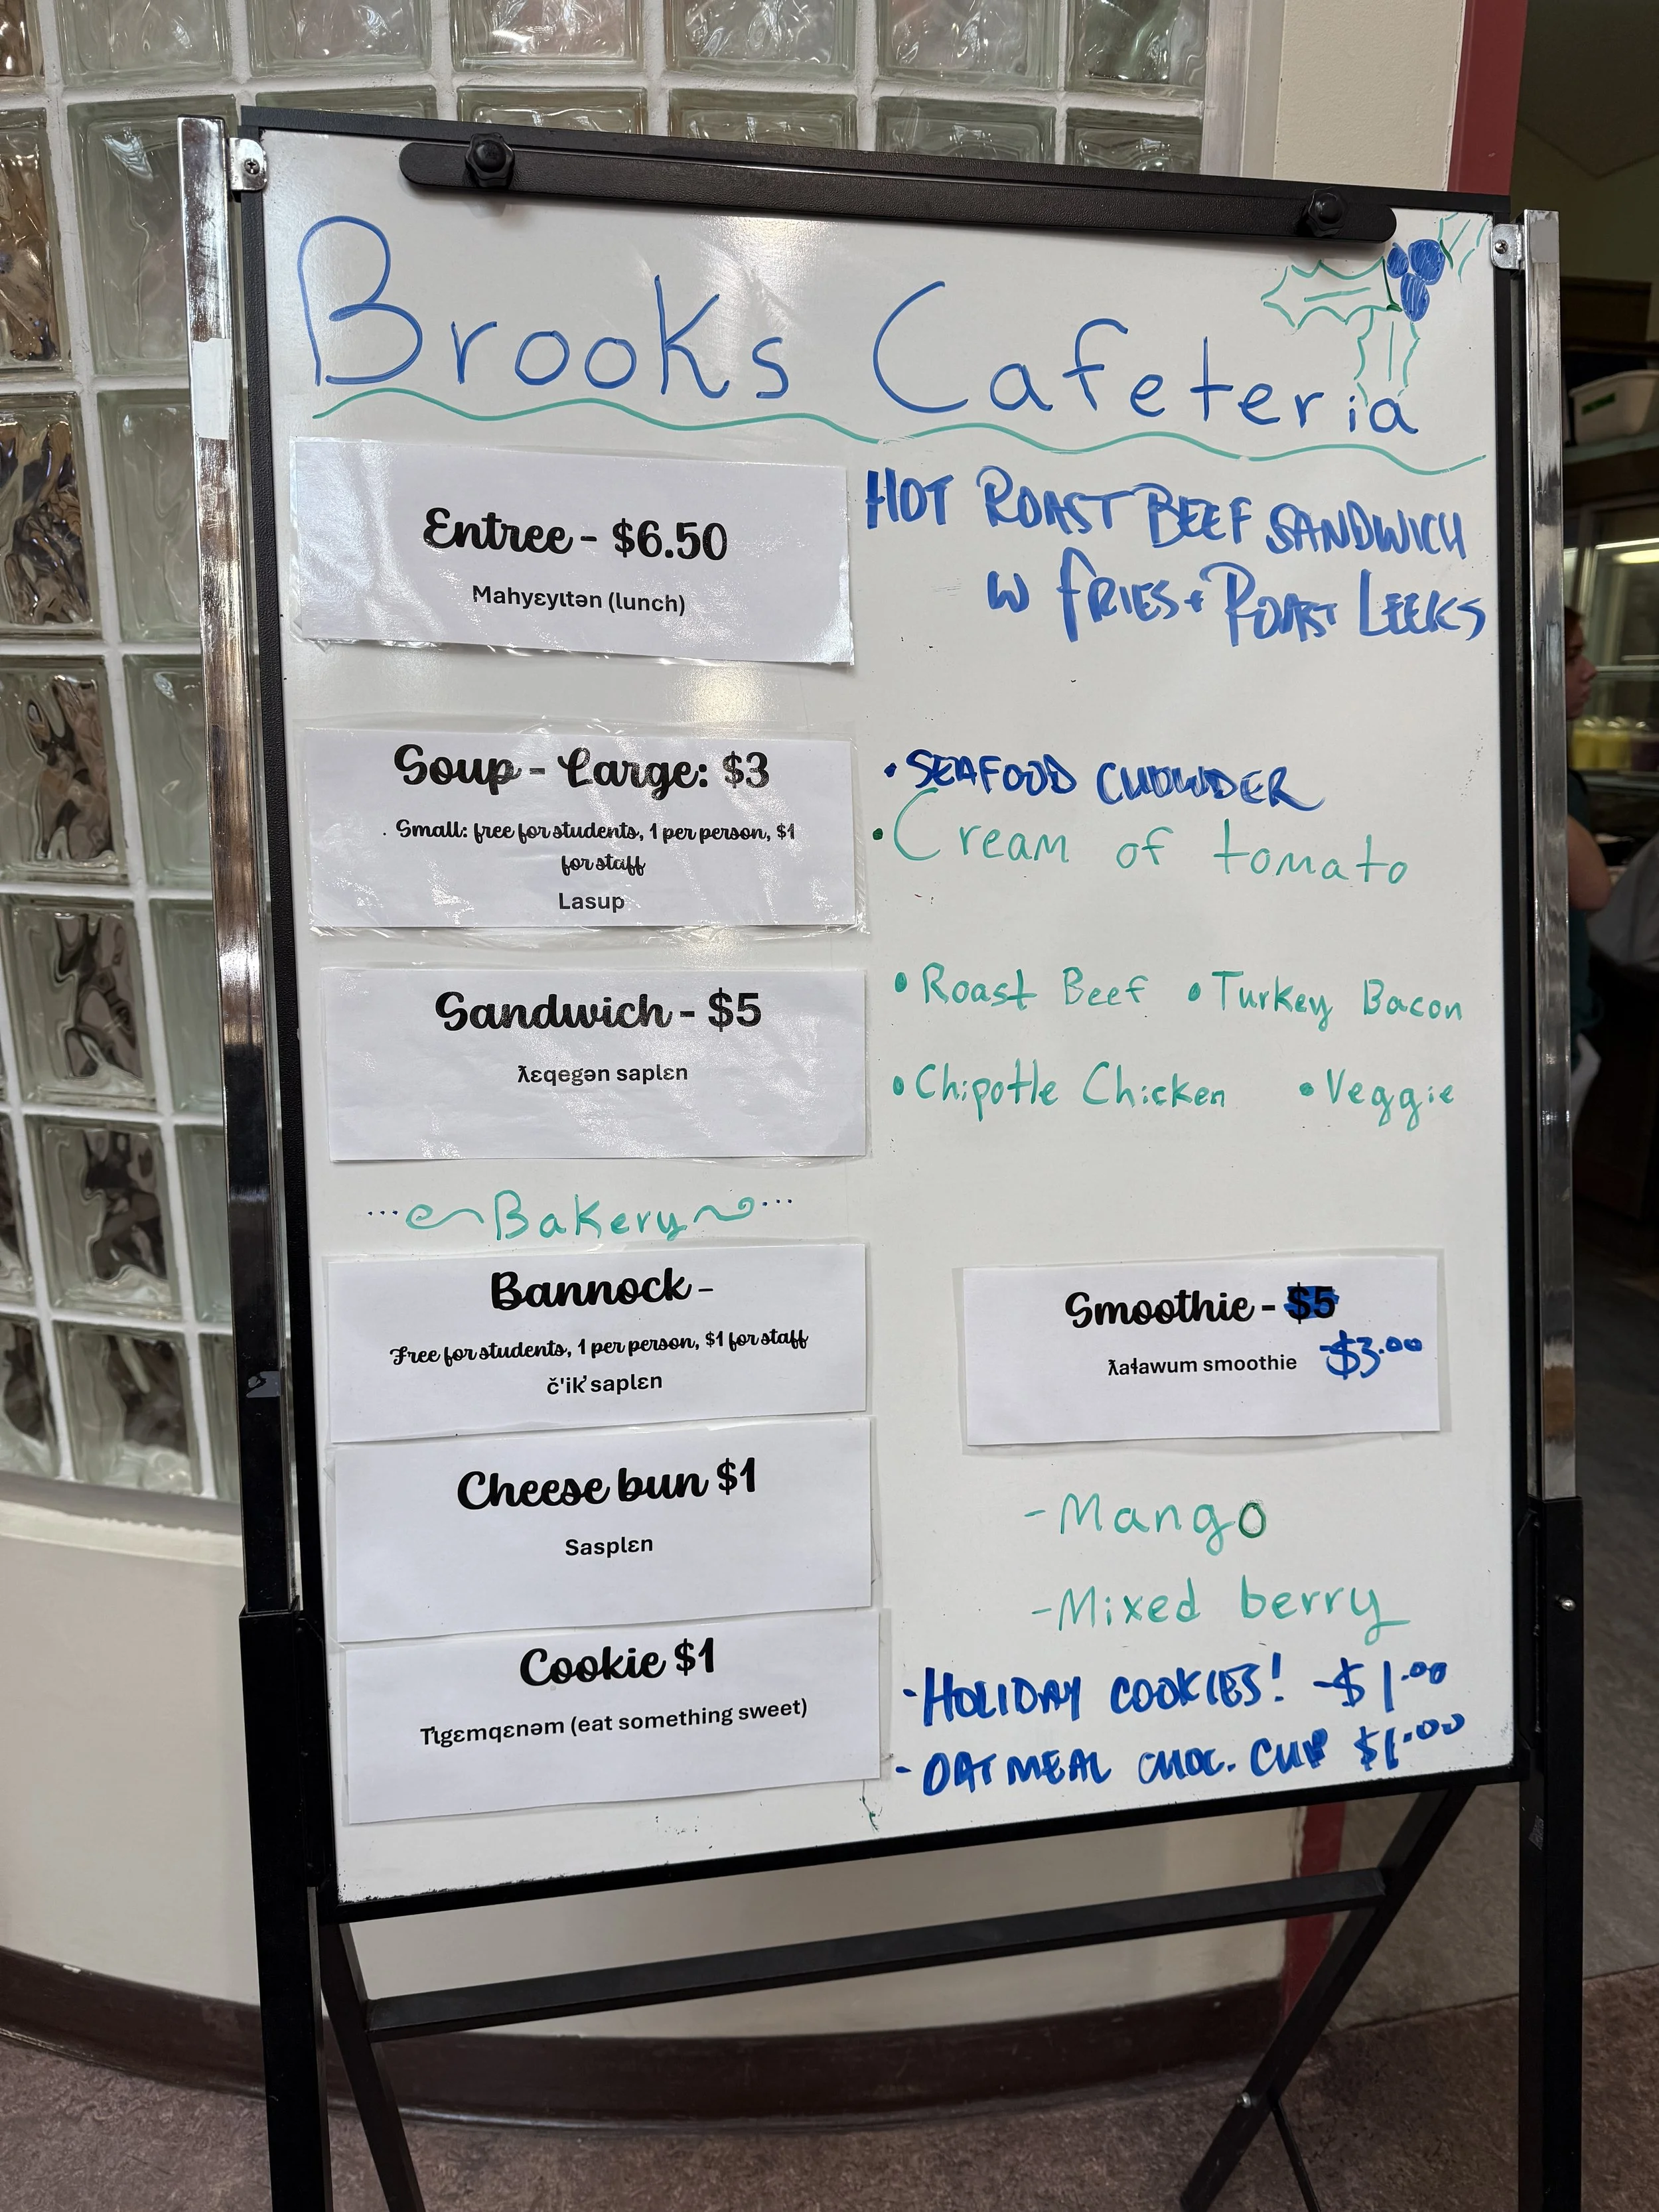 Brooks Cafeteria
Entree - $6.50
Mahyɛyɩtən (lunch)
HOT ROAST BEEF SANDWICH
W FRIES + ROAST LEEKS
Soup - Large: $3
. Small: free for students, 1 per person, $1
for staff
Lasup
• SEAFOOD CHOWDER
• Cream of tomato
Sandwich - $5
ƛɛqegən saplɛn
• Roast Beef • Turkey Bacon
• Chipotle Chicken • Veggie
... Bakery ...
Bannock -
Free for students, 1 per person, $1 for staff
č'ik̓ saplɛn
Cheese bun $1
Sasplɛn
Cookie $1
Tɩgɛmqɛnəm (eat something sweet)
Smoothie - $5
ƛaɬawum smoothie $3.00
- Mango
- Mixed berry
- HOLIDAY COOKIES! - $1.00
- OATMEAL CHOC. CHIP $1.00